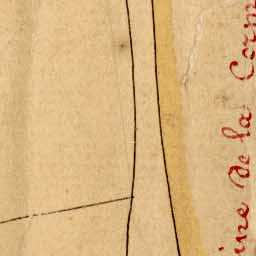 ine de la Corm